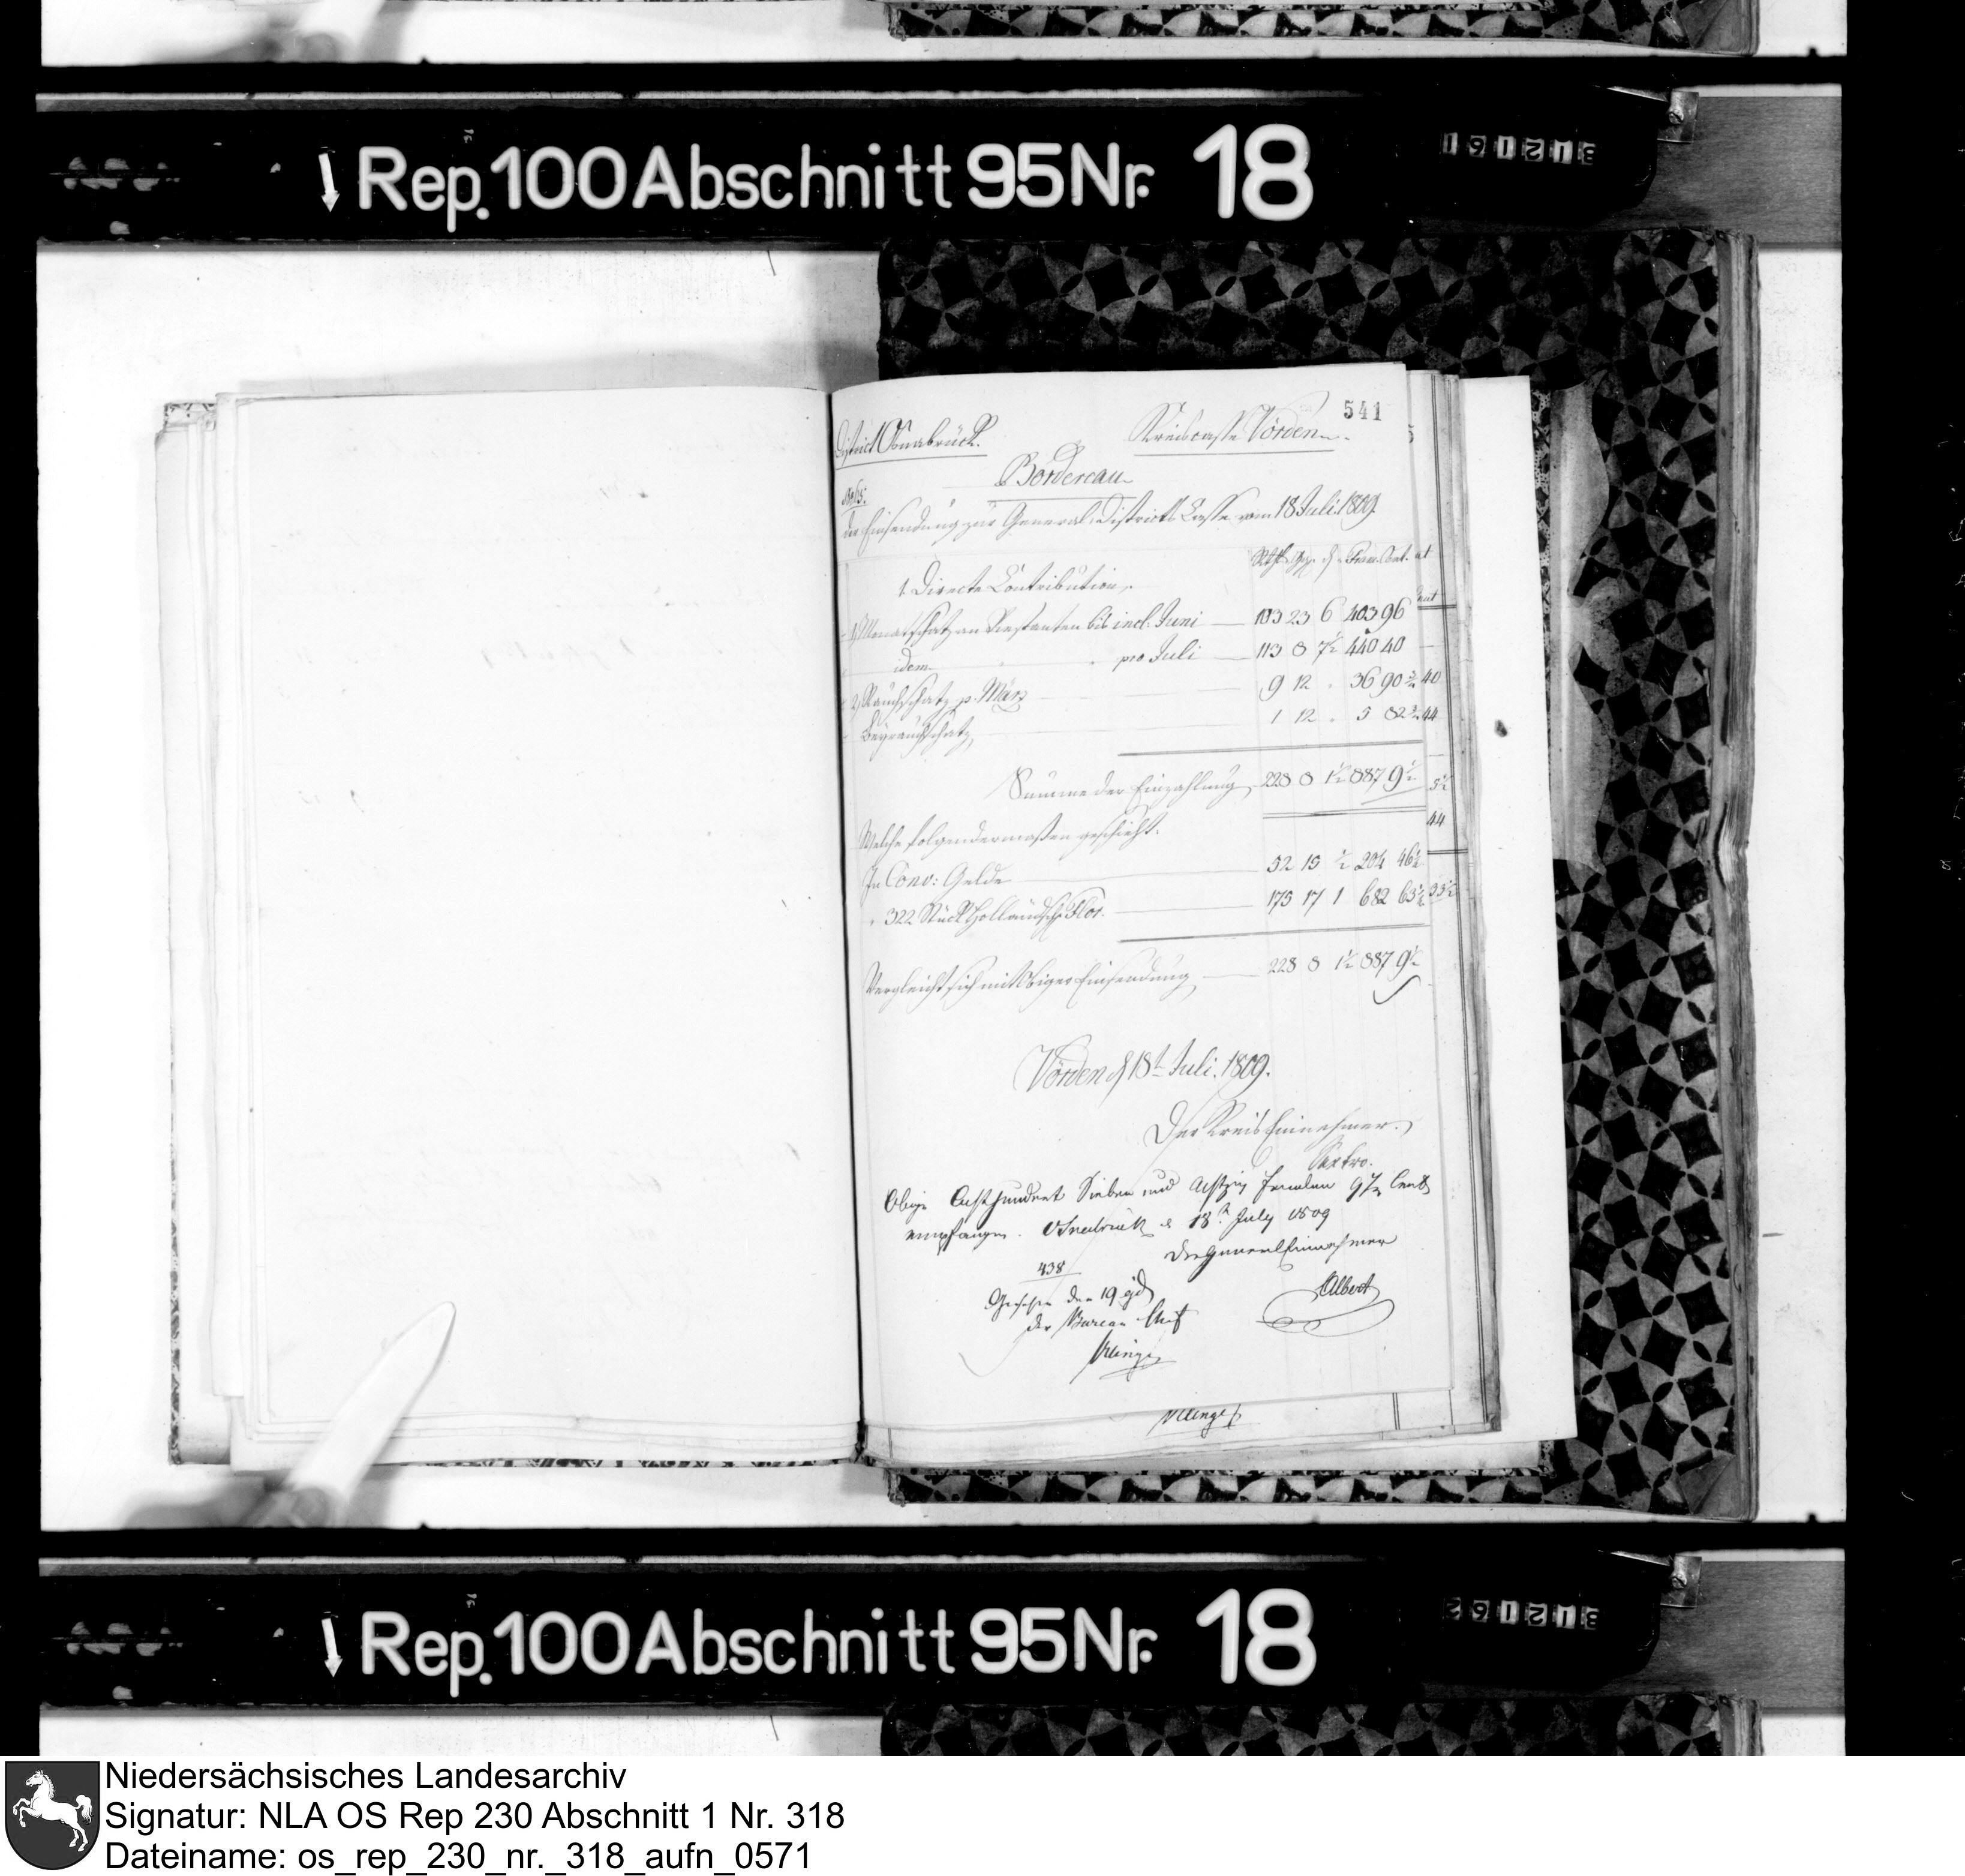 Rep. 100 Abschnitt 95 Nr. 18
312161
541
District Osnabrück.
Kreiscasse Vörden.
Bordereau
der Einsendung zur General Districts Casse vom 18 Juli 1809.
Rthlr. Ggr. ₰ Franc. Cent.
1. Directe Contribution.
1) Monatschatz an Restanten bis incl. Juni 103 23 6 403 96
idem pro Juli 113 8 7½ 440 40
2) Rauchschatz p. März 9 12 36 90
1 12 5 82
Summe der Einzahlung 228 8 1½ 887 9½
Welche folgendermaßen geschieht.
In Conv: Gelde 52 15 ½ 204 46½
322 Stück Holländsche Flor. 175 17 1 682 63½
Vergleicht sich mit obiger Einsendung 228 8 1½ 887 9½
Vörden d 18t Juli. 1809.
Der Kreis Einnehmer.
Sextro.
Obige Acht hundert Sieben und Achtzig Franken 9½ Cent
empfangen. Osnabrück d 18t July 1809
Der General Einnehmer
438
Albert
Gesehen den 19 ejd
der Bureau Chef
Klinge
Klinge
Rep. 100 Abschnitt 95 Nr. 18
312162
Niedersächsisches Landesarchiv
Signatur: NLA OS Rep 230 Abschnitt 1 Nr. 318
Dateiname: os_rep_230_nr._318_aufn_0571